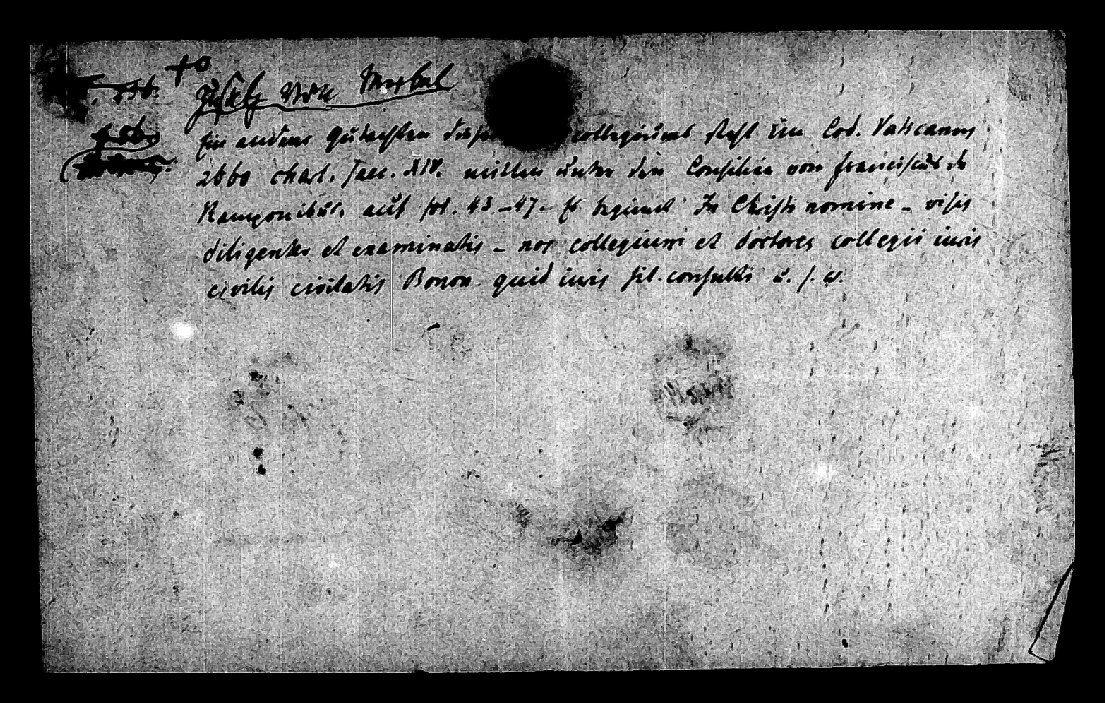 Zusatz von Merkel
Ein anderes Gutachten dieses collegiums steht im Cod. Vaticanus
2660 chart. saec. XIV. mitten unter den Consilien von Franciscus de
Ramponibus, auf fol. 43-47. Es beginnt: In Christi nomine - visis
diligenter et examinatis - nos collegium et doctores collegii iuris
civilis civitatis Bonon. quid iuris sit consultis u. s. w.